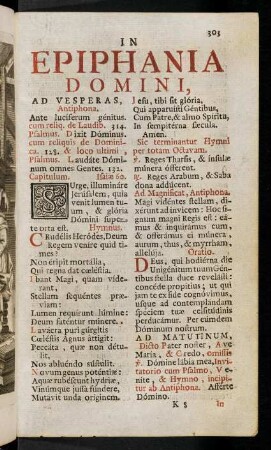 303
IN
EPIPHANIA
DOMINI,
AD VESPERAS,
Antiphona.
Ante luciferum génitus.
cum reliq. de Laudib. 314.
Psalmus. Dixit Dóminus.
cum reliquis de Dominica. 128, & loco ultimi
Psalmus. Laudáte Dóminum omnes Gentes. 132.
Capitulum. Isaiæ 60.
SUrge, illumináre
Jerúsalem, quia
venit lumen tuum, & glória
Dómini super te orta est.
Hymnus.
CRudélis Heródes, Deum
Regem veníre quid times?
Non éripit mortália,
Qui regna dat cœléstia.
Ibant Magi, quam víderant,
Stellam sequéntes præviam:
Lumen requírunt lúmine:
Deum faténtur múnere.
Lavácra puri gúrgitis
Cœléstis Agnus áttigit:
Peccáta, quæ non détulit,
Nos abluéndo sústulit.
Novum genus poténtiæ:
Aquæ rubéscunt hydriæ,
Vinúmque jussa fúndere,
Mutávit unda oríginem.
Jesu, tibi sit glória,
Qui apparuísti Géntibus,
Cum Patre, & almo Spíritu,
In sempitérna sæcula.
Amen.
Sic terminantur Hymni
per totam Octavam.
℣. Reges Tharsis, & ínsulæ
múnera ófferent.
℟. Reges Arabum, & Saba
dona addúcent.
Ad Magnificat, Antiphona.
Magi vidéntes stellam, dixérunt ad ínvicem: Hoc signum magni Regis est: eámus & inquirámus eum,
& offerámus ei múnera,
aurum, thus, & myrrham,
allelúja.
Oratio.
DEus, qui hodiérna die
Unigénitum tuum Géntibus stella duce revelásti:
concéde propítius; ut qui
jam te ex fide cognóvimus,
usque ad contemplándam
spéciem tuæ celsitúdinis
perducámur. Per eúmdem
Dóminum nostrum.
AD MATUTINUM,
Dicto Pater noster, Ave
Maria, & Credo, omissis
℣. Dómine lábia mea, Invitatorio cum Psalmo, Venite, & Hymno, incipitur ab Antiphona. Afférte
Dómino.
K 8
In